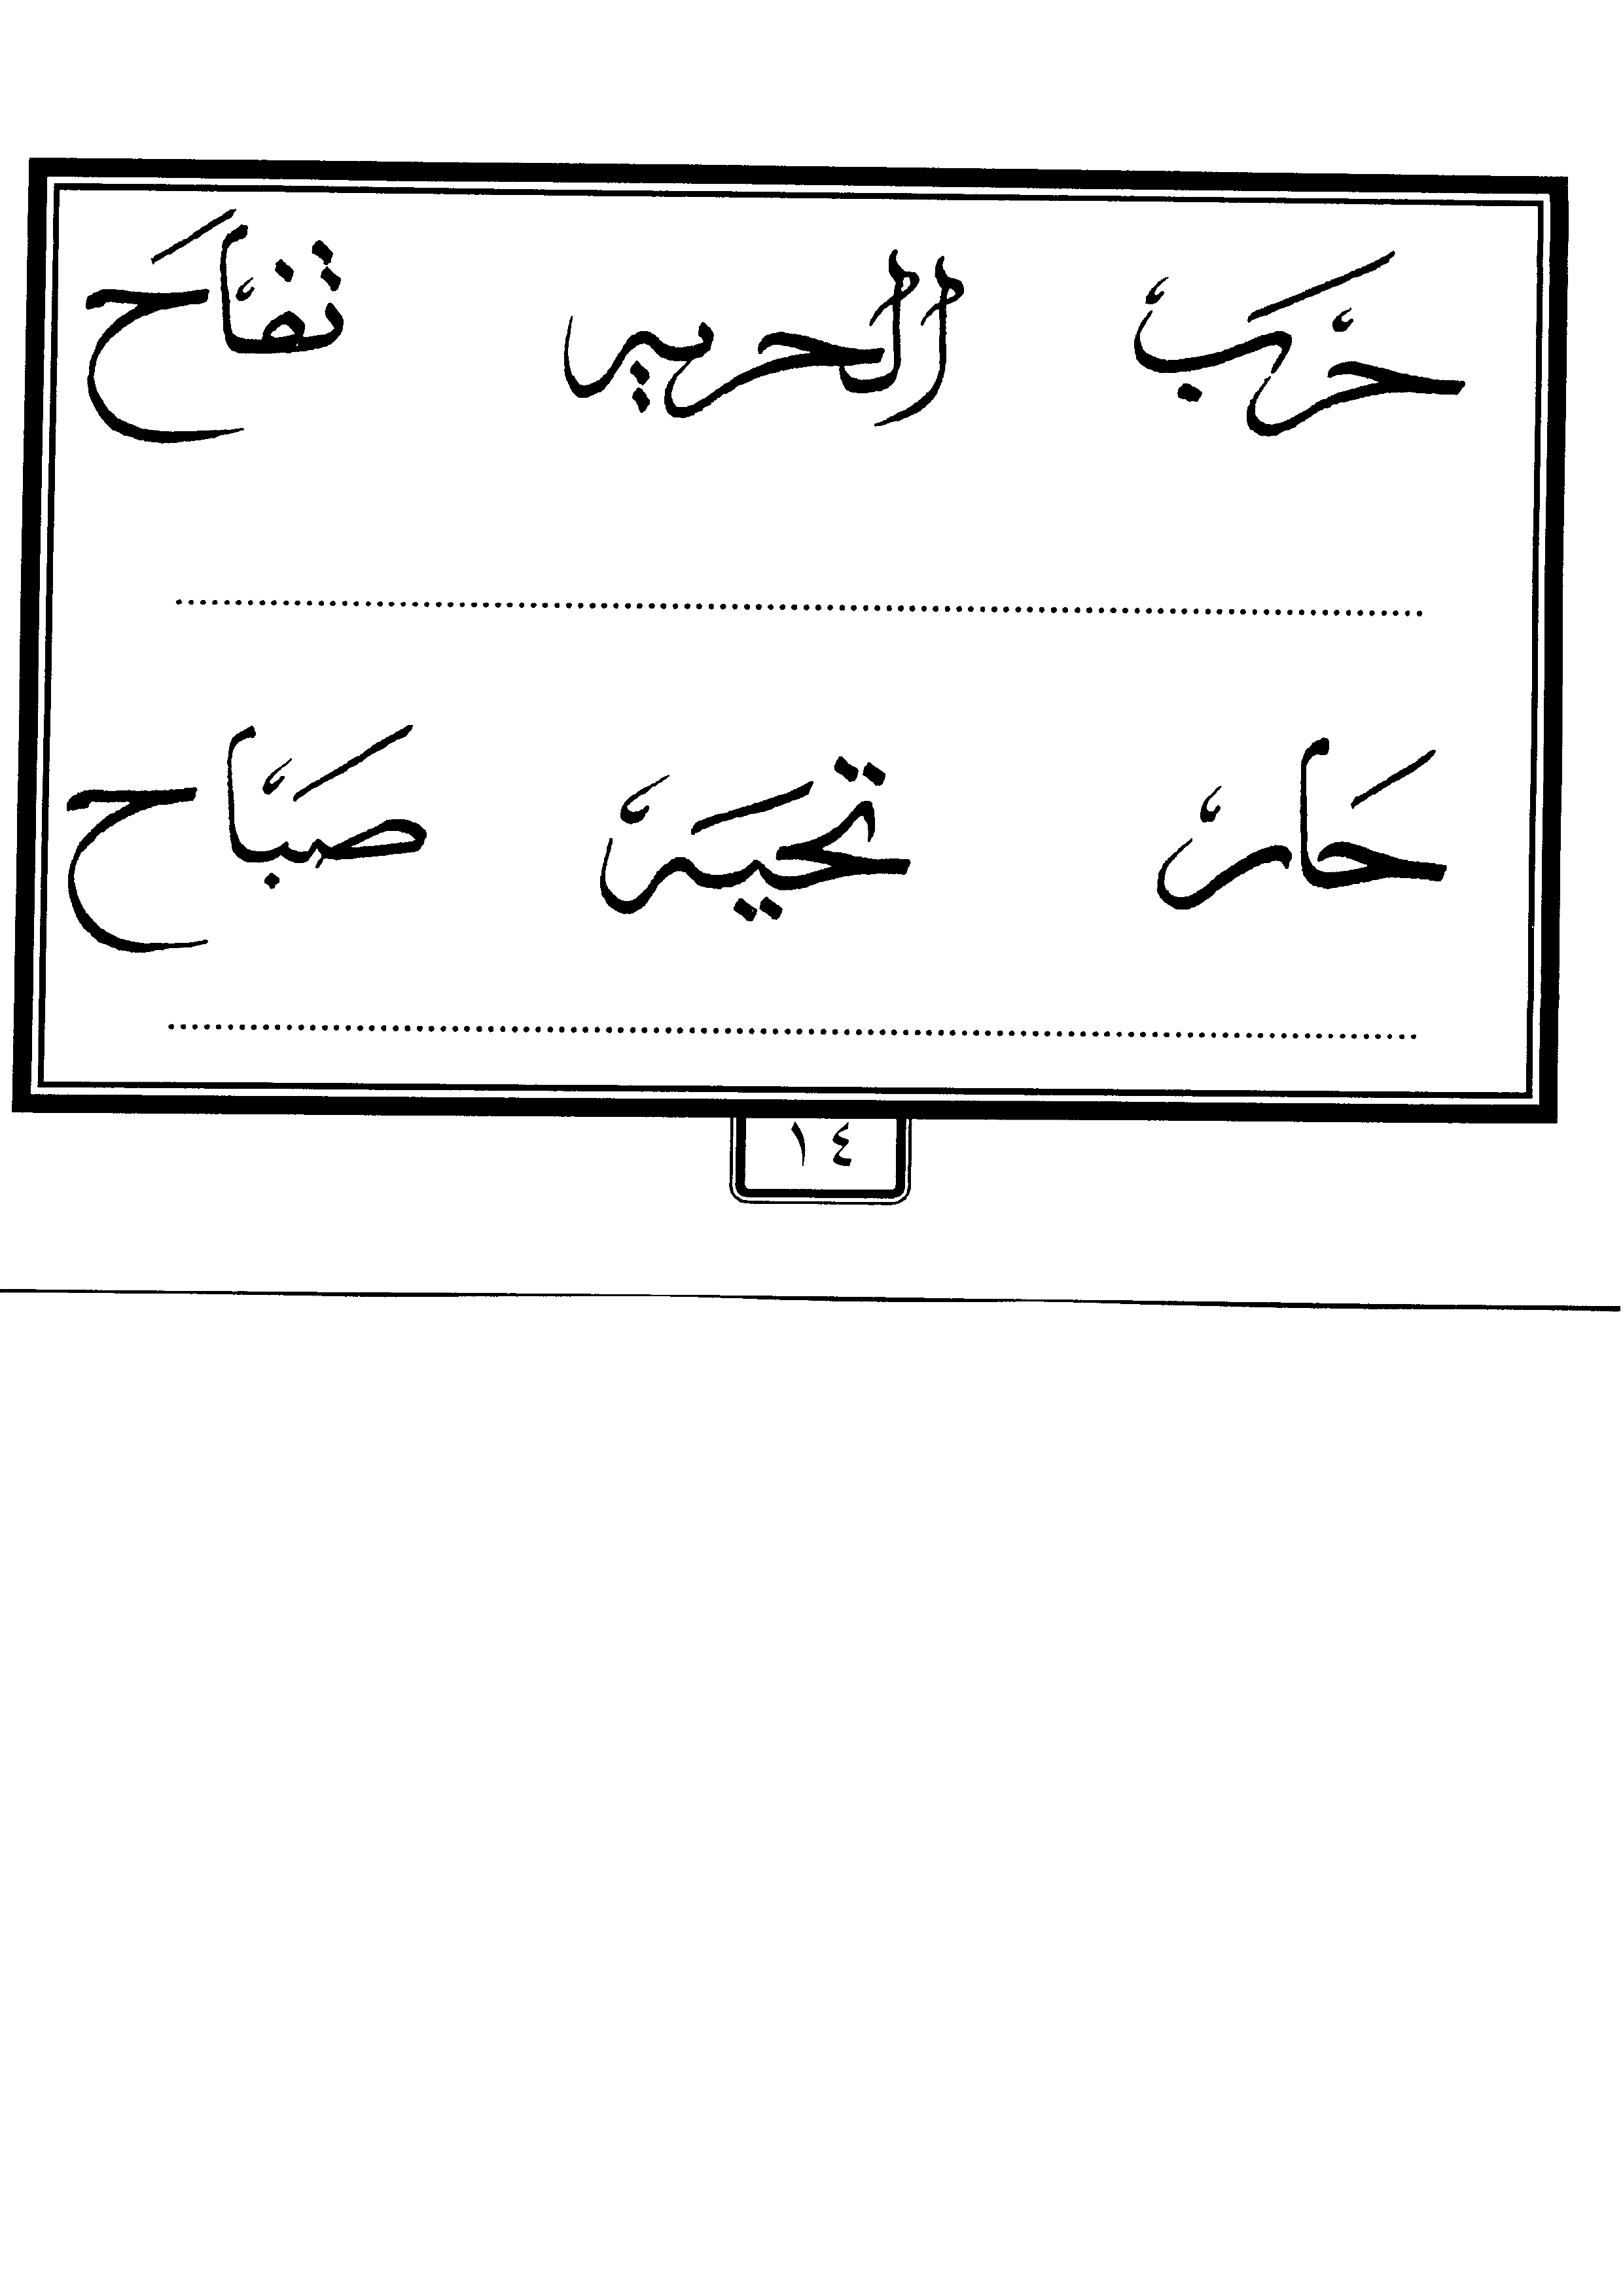 حرب الحرير تفاح
حار تحية صباح
١٤